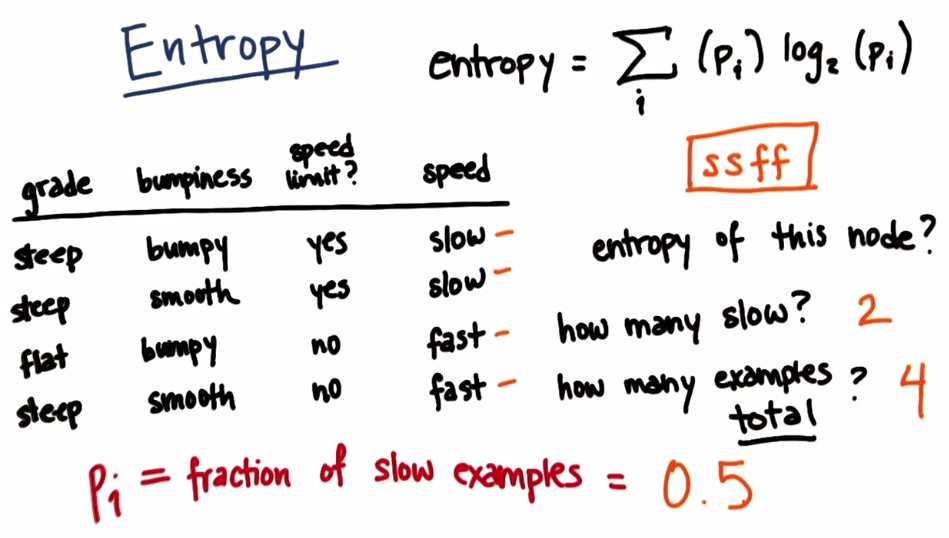 Entropy
entropy = ∑ᵢ (pᵢ) log₂ (pᵢ)
ssff
grade bumpiness speed limit? speed
steep bumpy yes slow –
steep smooth yes slow –
flat bumpy no fast –
steep smooth no fast –
entropy of this node?
how many slow? 2
how many examples total? 4
pᵢ = fraction of slow examples = 0.5